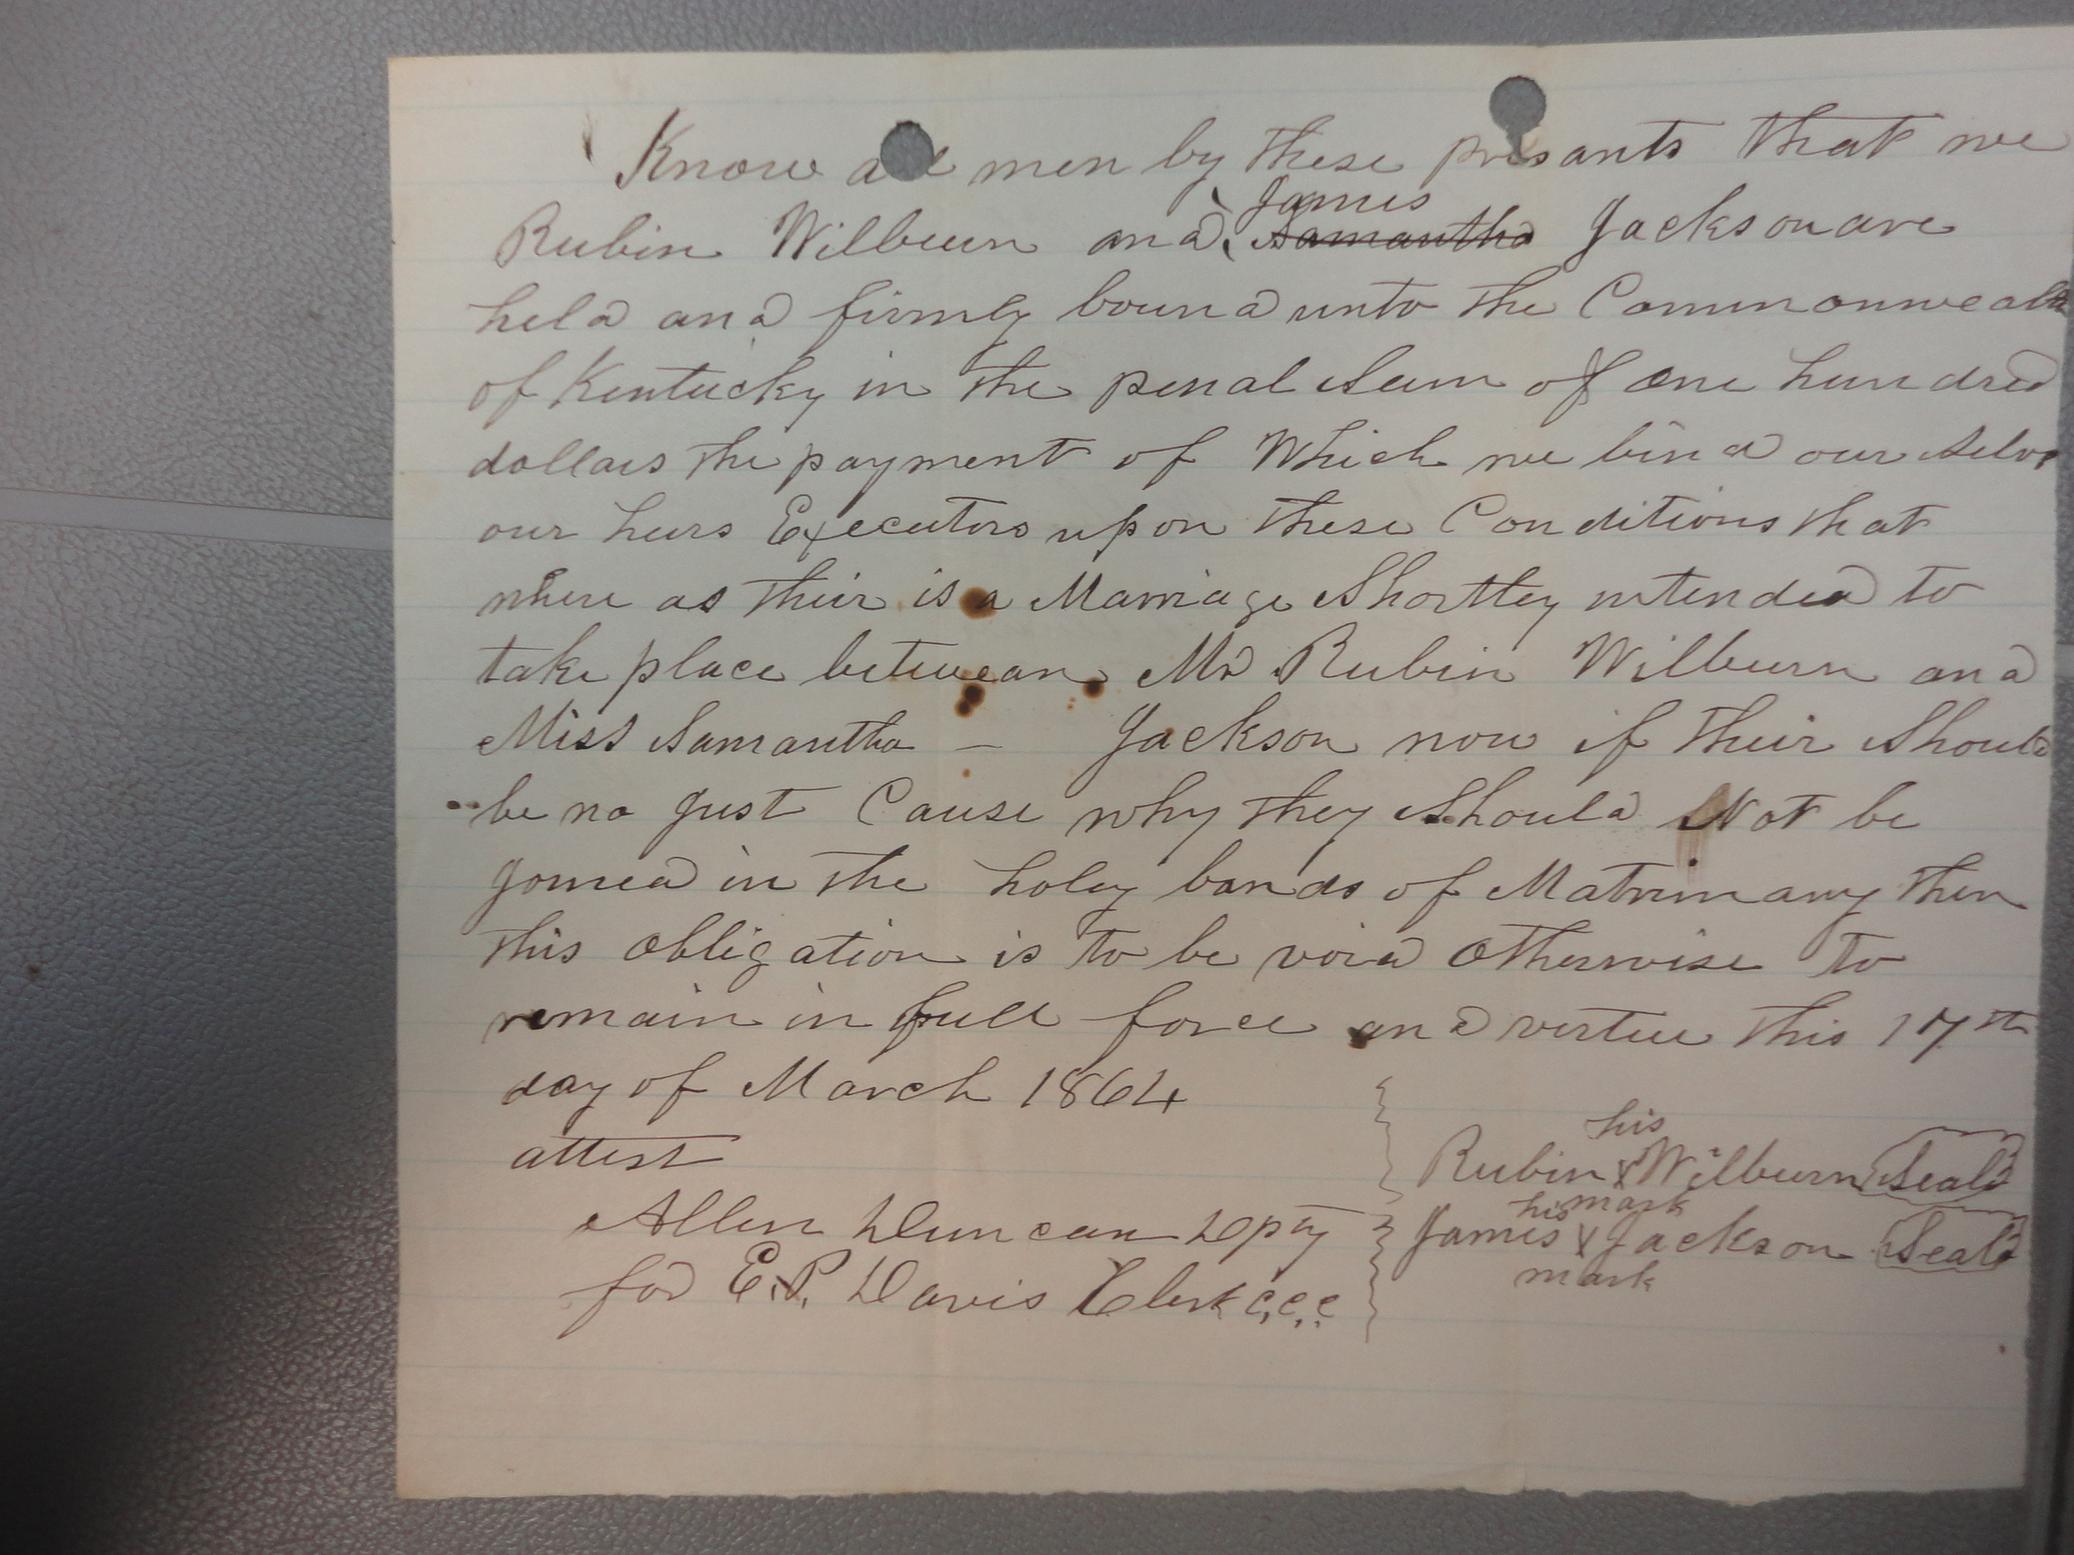 Know all men by these presants that we
James
Rubin Wilburn and Samantha Jackson are
held and firmly bound unto the Commonwealth
of Kentucky in the penal Sum of one hundred
dollars the payment of Which we bind our Selvs
our heirs Executors upon these Conditions that
where as their is a Marriage Shortley intended to
take place betwean Mr Rubin Wilburn and
Miss Samantha — Jackson now if their Should
be no Just Cause why they Should Not be
Joined in the holey bands of Matrimany then
this obligation is to be void otherwise to
remain in full force and vertue this 17th
day of March 1864
attest
his
Rubin X Wilburn Seal
mark
his
Allen Duncan Dpty James X Jackson Seal
mark
for E.P. Davis Clerk C.C.C